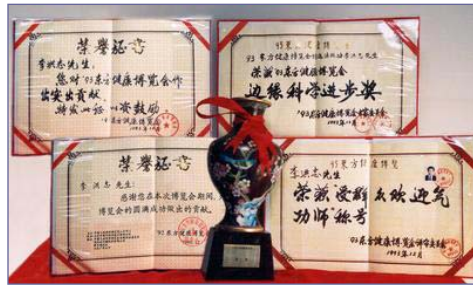 荣誉证书
李洪志先生:
您对'93东方健康博览会作
出突出贡献,
特发此证,以资鼓励。
'93东方健康博览会
1993年12月
荣获'93东方健康博览会
边缘科学进步奖
'93东方健康博览会
1993年12月
荣誉证书
李洪志 先生:
感谢您在本次博览会期间,为
博览会的圆满成功做出的贡献。
'93东方健康博览
李洪志先生
荣获受群众欢迎气
功师称号
'93东方健康博览会评审委员会
1993年12月